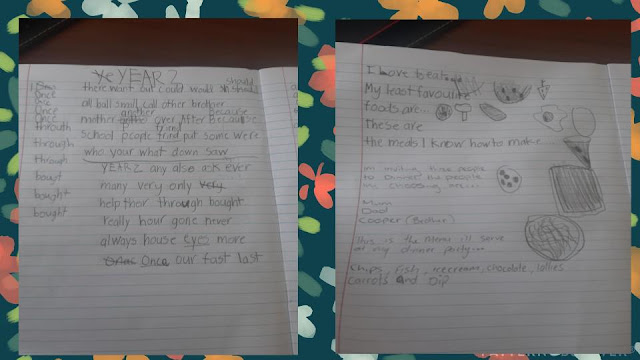 YEAR 2
should
there want out could would should
all ball small call other brother
another because
mother over After Because
friend
School people friend put some were
who your what down saw
Once
Once
Once
through
through
through
bought
bought
YEAR 2 any also ask ever
many very only very
help their through bought
really hour gone never
always house eyes more
Once our fast last
I love to eat
My least favourite
foods are...
These are
the meals I know how to make...
im inviting these people
to dinner the people
im choosing are...
Mum
Dad
Cooper (Brother)
This is the menu ill serve
at my dinner party...
Chips, Fish, icecream, chocolate, lollies
Carrots And Dip